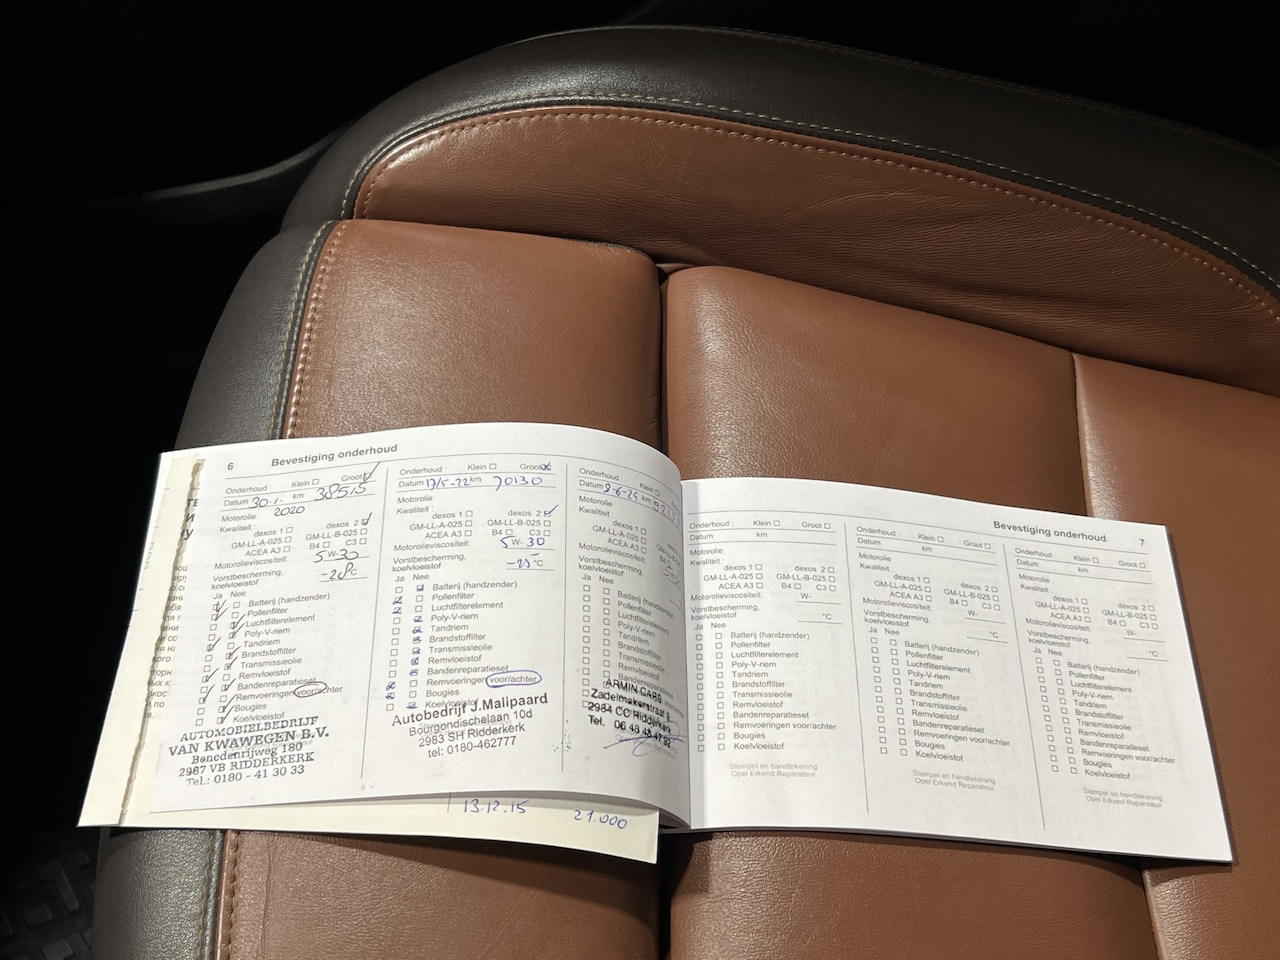 6 Bevestiging onderhoud
Onderhoud : Klein Groot
Datum 30-1- km 38515
2020
Motorolie
Kwaliteit : dexos 1 dexos 2
GM-LL-A-025 GM-LL-B-025
ACEA A3 B4 C3
Motorolieviscositeit: 5 W-30
Vorstbescherming,
koelvloeistof -28°C
Ja Nee
Batterij (handzender)
Pollenfilter
Luchtfilterelement
Poly-V-riem
Tandriem
Brandstoffilter
Transmissieolie
Remvloeistof
Bandenreparatieset
Remvoeringen voor/achter
Bougies
Koelvloeistof
AUTOMOBIELBEDRIJF
VAN KWAWEGEN B.V.
Benedenrijweg 180
2987 VB RIDDERKERK
Tel.: 0180 - 41 30 33
Onderhoud : Klein Groot
Datum 17/5-22 km 70130
Motorolie
Kwaliteit : dexos 1 dexos 2
GM-LL-A-025 GM-LL-B-025
ACEA A3 B4 C3
Motorolieviscositeit: 5 W- 30
Vorstbescherming,
koelvloeistof °C
Ja Nee
Batterij (handzender)
Pollenfilter
Luchtfilterelement
Poly-V-riem
Tandriem
Brandstoffilter
Transmissieolie
Remvloeistof
Bandenreparatieset
Remvoeringen voor/achter
Bougies
Koelvloeistof
Autobedrijf J.Malipaard
Bourgondischelaan 10d
2983 SH Ridderkerk
tel: 0180-462777
Onderhoud : Klein
Datum km
Motorolie
Kwaliteit : dexos 1
GM-LL-A-025
ACEA A3
Motorolieviscositeit:
Vorstbescherming,
koelvloeistof
Ja Nee
Batterij
Pollenfilter
Luchtfilterelement
Poly-V-riem
Tandriem
Brandstoffilter
Transmissieolie
Remvloeistof
Bandenreparatieset
ARMIN CARS
Zadelmakerstraat
2984 CC Ridderkerk
Tel. 06
13.12.15 21.000
Bevestiging onderhoud 7
Onderhoud : Klein Groot
Datum km
Motorolie
Kwaliteit : dexos 1 dexos 2
GM-LL-A-025 GM-LL-B-025
ACEA A3 B4 C3
Motorolieviscositeit: W-
Vorstbescherming,
koelvloeistof °C
Ja Nee
Batterij (handzender)
Pollenfilter
Luchtfilterelement
Poly-V-riem
Tandriem
Brandstoffilter
Transmissieolie
Remvloeistof
Bandenreparatieset
Remvoeringen voor/achter
Bougies
Koelvloeistof
Stempel en handtekening
Opel Erkend Reparateur
Onderhoud : Klein Groot
Datum km
Motorolie
Kwaliteit : dexos 1 dexos 2
GM-LL-A-025 GM-LL-B-025
ACEA A3 B4 C3
Motorolieviscositeit: W-
Vorstbescherming,
koelvloeistof °C
Ja Nee
Batterij (handzender)
Pollenfilter
Luchtfilterelement
Poly-V-riem
Tandriem
Brandstoffilter
Transmissieolie
Remvloeistof
Bandenreparatieset
Remvoeringen voor/achter
Bougies
Koelvloeistof
Stempel en handtekening
Opel Erkend Reparateur
Onderhoud : Klein Groot
Datum km
Motorolie
Kwaliteit : dexos 1 dexos 2
GM-LL-A-025 GM-LL-B-025
ACEA A3 B4 C3
Motorolieviscositeit: W-
Vorstbescherming,
koelvloeistof °C
Ja Nee
Batterij (handzender)
Pollenfilter
Luchtfilterelement
Poly-V-riem
Tandriem
Brandstoffilter
Transmissieolie
Remvloeistof
Bandenreparatieset
Remvoeringen voor/achter
Bougies
Koelvloeistof
Stempel en handtekening
Opel Erkend Reparateur